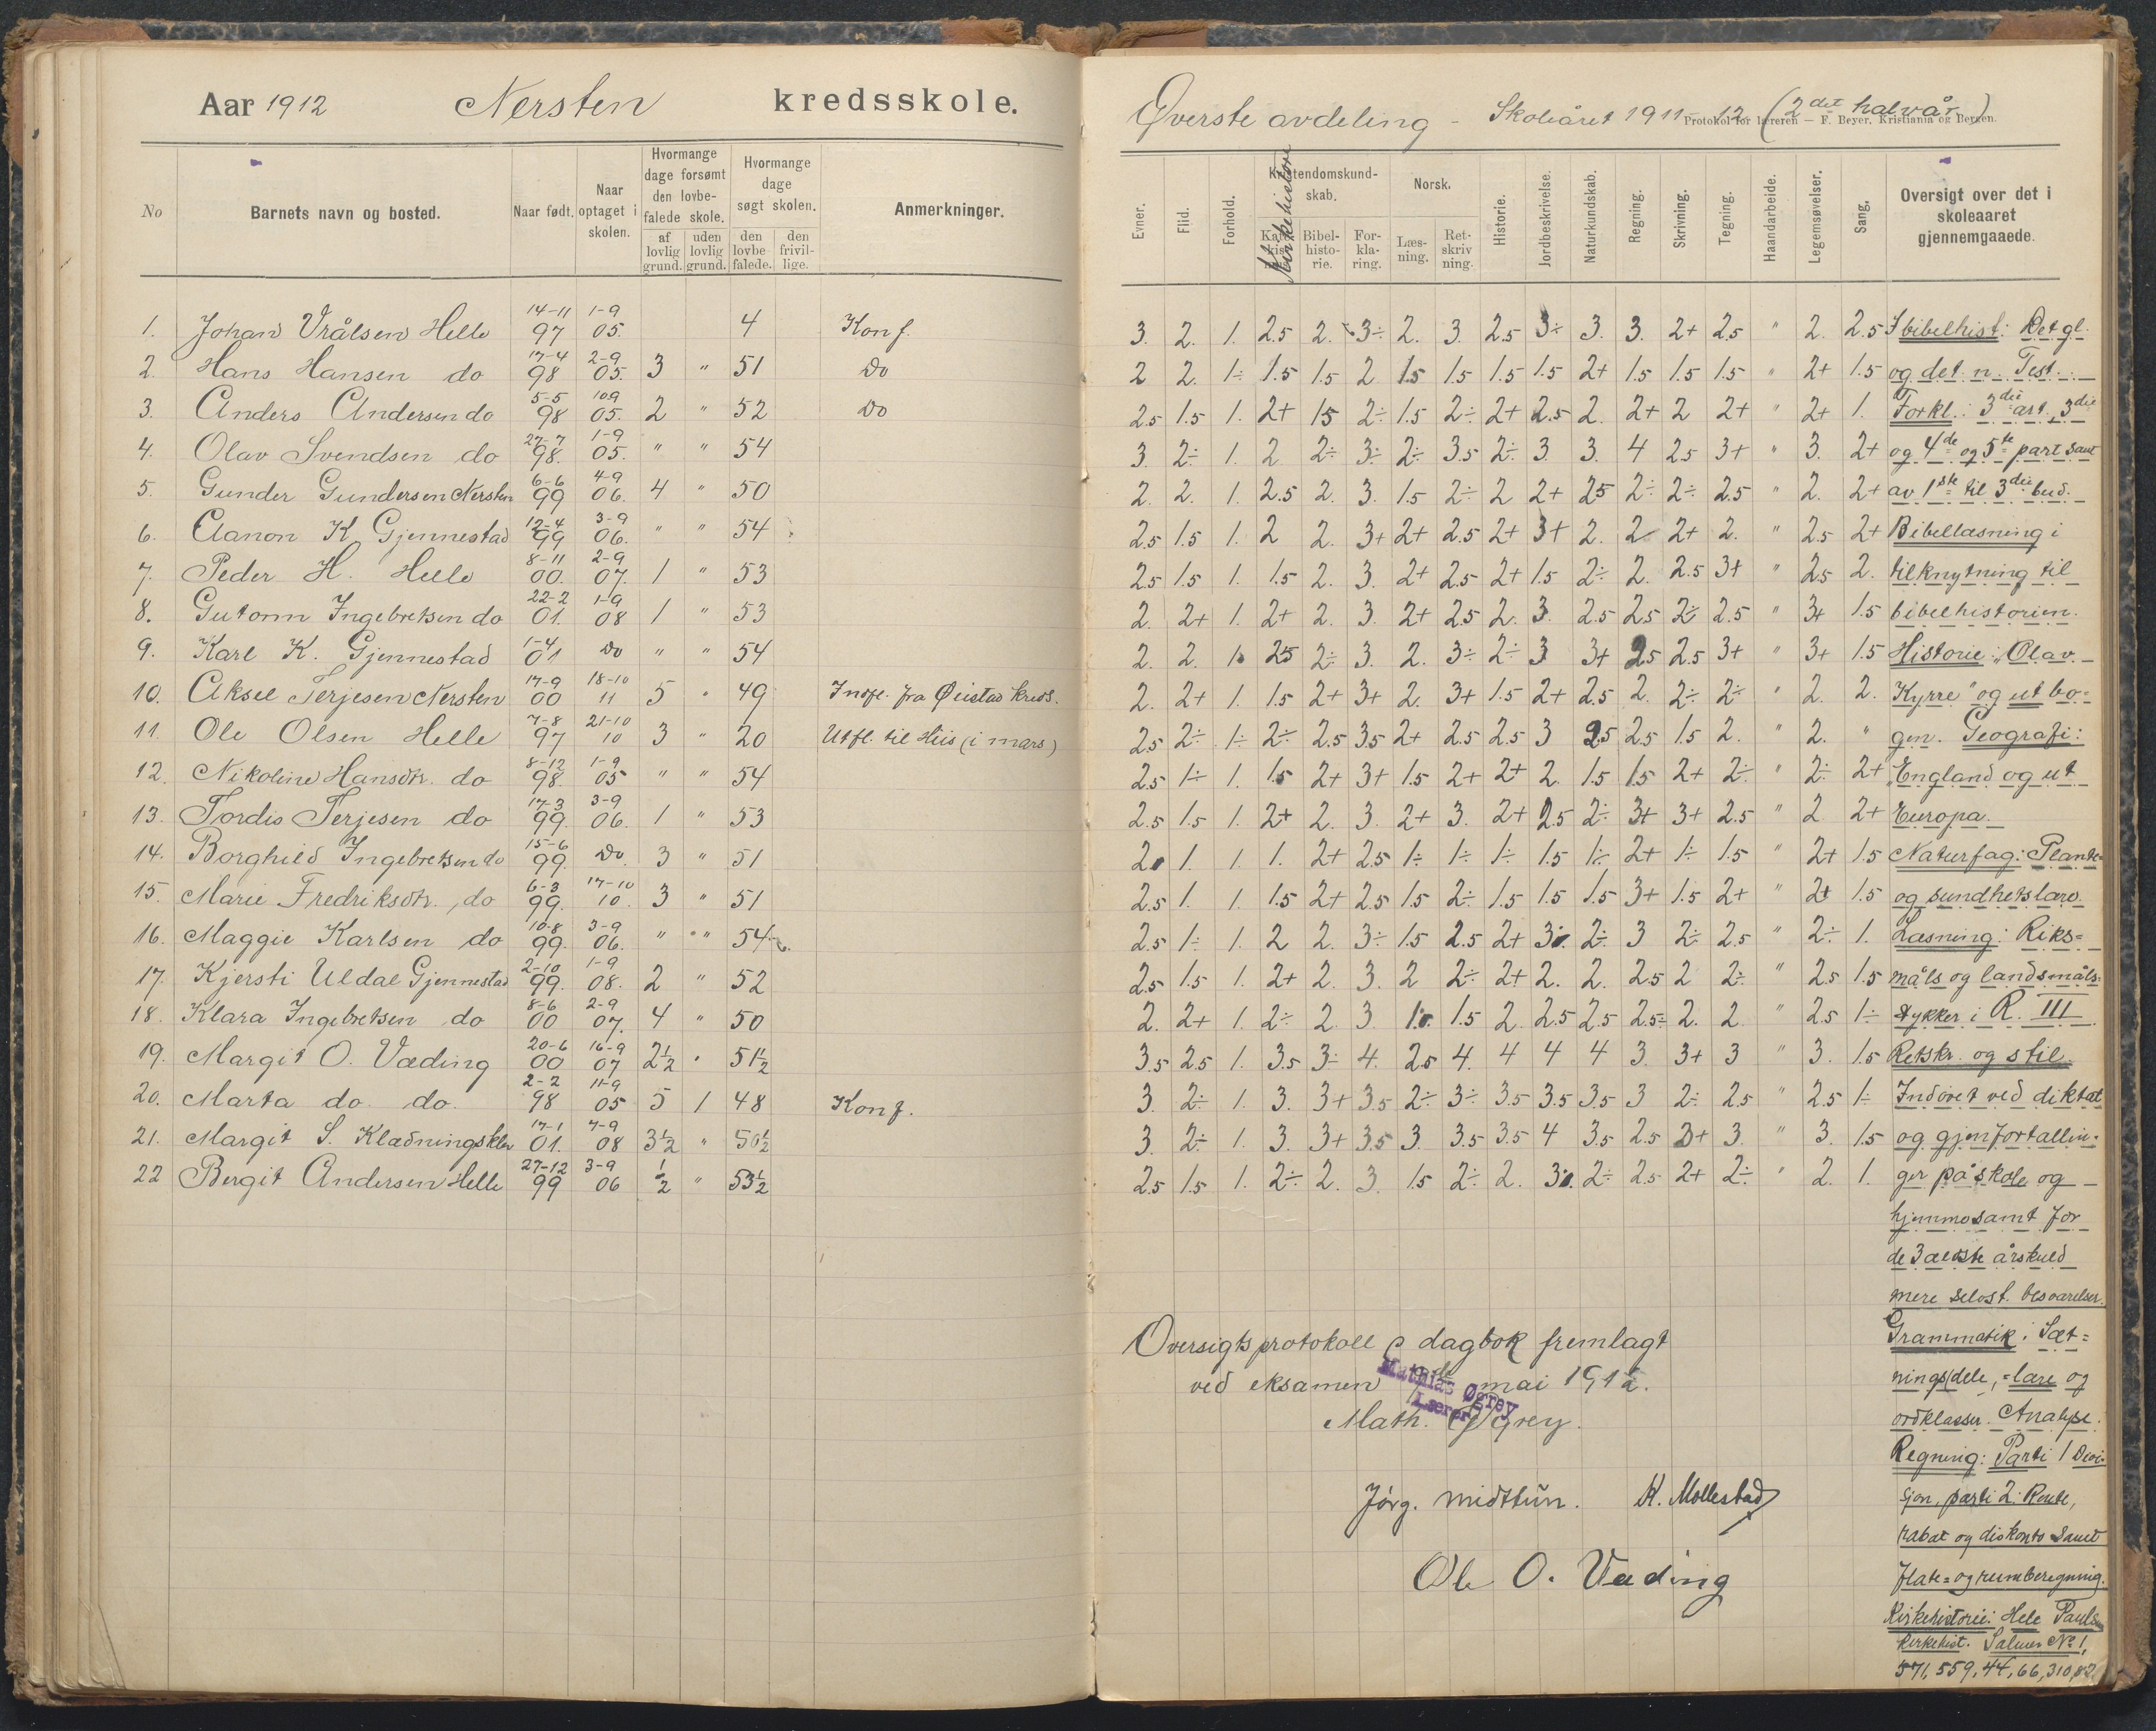 Aar 1912 Nersten kredsskole.
No
Barnets navn og bosted.
Naar født.
Naar optaget i skolen.
Hvormange dage forsømt den lovbefalede skole.
af lovlig grund.
uden lovlig grund.
Hvormange dage søgt skolen.
den lovbefalede.
den frivillige.
Anmerkninger.
1. Johan Vrålsen Helle 14-11 97 1-9 05. 4 Konf.
2. Hans Hansen do 17-4 98 2-9 05. 3 " 51 Do
3. Anders Andersen do 5-5 98 10-9 05. 2 " 52 Do
4. Olav Svendsen do 27-7 98. 1-9 05. " " 54
5. Gunder Gundersen Nersten 6-6 99 4-9 06. 4 " 50
6. Aanon K Gjennestad 12-4 99 3-9 06. " " 54
7. Peder H. Helle 8-11 00. 2-9 07. 1 " 53
8. Gutorm Ingebretsen do 22-2 01. 1-9 08 1 " 53
9. Karl K. Gjennestad 1-4 01 Do " " 54
10. Aksel Terjesen Nersten 17-9 00 18-10 11 5 " 49 Indfl. fra Øeistad kreds.
11. Ole Olsen Helle 7-8 97 21-10 10 3 " 20 Utfl. til Hiis (i mars)
12. Nikoline Hansdtr. do 8-12 98. 1-9 05 " " 54
13. Tordis Terjesen do 17-3 99. 3-9 06. 1 " 53
14. Borghild Ingebretsen do 15-6 99. Do 3 " 51
15. Marie Fredriksdtr. do 6-3 99. 17-10 10. 3 " 51
16. Maggie Karlsen do 10-8 99. 3-9 06. " " 54
17. Kjersti Uldal Gjennestad 2-10 99. 1-9 08. 2 " 52
18. Klara Ingebretsen do 8-6 00 2-9 07. 4 " 50
19. Margit O. Væding 20-6 00 16-9 07 2½ " 51½
20. Marta do. do. 2-2 98 11-9 05 5 1 48 Konf.
21. Margit S. Klædningsklev 17-1 01. 7-9 08 3½ " 50½
22 Bergit Andersen Helle 27-12 99 3-9 06 ½ " 53½
Øverste avdeling - Skoleåret 1911-12 (2det halvår)
Protokol for læreren — F. Beyer, Kristiania og Bergen.
Evner.
Flid.
Forhold.
Kristendomskundskab.
Kirkehistorie
Bibelhistorie.
Forklaring.
Norsk.
Læsning.
Retskrivning.
Historie.
Jordbeskrivelse.
Naturkundskab.
Regning.
Skrivning.
Tegning.
Haandarbeide.
Legemsøvelser.
Sang.
Oversigt over det i skoleaaret gjennemgaaede.
3. 2. 1. 2.5 2. 3÷ 2. 3. 2.5 3÷ 3. 3. 2+ 2.5 " 2. 2.5 I bibelhist: Det gl.
2 2. 1÷ 1.5 1.5 2 1.5 1.5 1.5 1.5 2+ 1.5 1.5 1.5 " 2+ 1.5 og det n. Test.
2.5 1.5 1. 2+ 1.5 2÷ 1.5 2÷ 2+ 2.5 2. 2+ 2 2+ " 2+ 1. Forkl.: 3die art., 3die
3. 2÷ 1. 2 2÷ 3÷ 2÷ 3.5 2÷ 3 3. 4 2.5 3+ " 3. 2+ og 4de og 5te part samt
2. 2. 1. 2.5 2. 3. 1.5 2÷ 2 2+ 2.5 2÷ 2÷ 2.5 " 2. 2+ av 1ste til 3die bud.
2.5 1.5 1. 2 2. 3+ 2+ 2.5 2+ 3+ 2. 2 2+ 2. " 2.5 2+ Bibellæsning i
2.5 1.5 1. 1.5 2. 3. 2+ 2.5 2+ 1.5 2÷ 2. 2.5 3+ " 2.5 2. tilknytning til
2. 2+ 1. 2+ 2. 3. 2+ 2.5 2. 3. 2.5 2.5 2÷ 2.5 " 3+ 1.5 bibelhistorien.
2. 2. 1. 2.5 2÷ 3. 2. 3÷ 2÷ 3 3+ 2.5 2.5 3+ " 3+ 1.5 Historie: "Olav
2. 2+ 1. 1.5 2+ 3+ 2. 3+ 1.5 2+ 2.5 2. 2÷ 2÷ " 2. 2. Kyrre" og ut bo=
2.5 2÷ 1÷ 2÷ 2.5 3.5 2+ 2.5 2.5 3 2.5 2.5 1.5 2. " 2. " gen. Geografi:
2.5 1÷ 1. 1.5 2+ 3+ 1.5 2+ 2+ 2. 1.5 1.5 2+ 2÷ " 2÷ 2+ "England og ut
2.5 1.5 1. 2+ 2. 3. 2+ 3. 2+ 2.5 2÷ 3+ 3+ 2.5 " 2 2+ Europa.
2. 1. 1. 1. 2+ 2.5 1÷ 1÷ 1÷ 1.5 1÷ 2+ 1÷ 1.5 " 2+ 1.5 Naturfag: Plante=
2.5 1. 1 1.5 2+ 2.5 1.5 2÷ 1.5 1.5 1.5 3+ 1.5 2+ " 2+ 1.5 og sundhetslære.
2.5 1÷ 1. 2 2. 3÷ 1.5 2.5 2+ 3. 2÷ 3 2÷ 2.5 " 2÷ 1. Læsning: Riks=
2.5 1.5 1. 2+ 2. 3. 2 2÷ 2+ 2. 2. 2.5 2 2÷ " 2.5 1.5 måls og landsmåls=
2. 2+ 1. 2÷ 2. 3 1. 1.5 2 2.5 2.5 2.5÷ 2. 2 " 2.5 1÷ stykker i R. III
3.5 2.5 1. 3.5 3÷ 4. 2.5 4. 4 4 4 3. 3+ 3 " 3. 1.5 Retskr. og stil
3. 2÷ 1. 3. 3+ 3.5 2÷ 3÷ 3.5 3.5 3.5 3 2÷ 2.5 " 2.5 1÷ Indøvet ved diktat
3. 2÷ 1. 3. 3+ 3.5 3. 3.5 3.5 4 3.5 2.5 3+ 3. " 3. 1.5 og gjenfortællin=
2.5 1.5 1. 2÷ 2. 3. 1.5 2÷ 2. 3. 2÷ 2.5 2+ 2÷ " 2. 1. ger på skole og
hjemme samt for
de 3 ældste årskuld
mere selvst. besvarelser.
Grammatik: Sæt=
nings(dele, =lære og
ordklasser. Analyse.
Regning: Parti 1 Divi=
sjon, parti 2: Rente,
rabat og diskonto samt
flate= og rumberegning.
Kirkehistorie: Hele Pauls
kirkehist. Salmer No 1,
571, 559, 44, 66, 310, 82
Oversigtsprotokoll & dagbok fremlagt
ved eksamen mai 1912.
Mathias Øgrey
Lærer
Math. Øgrey.
Jørg. Midttun. K. Mollestad
Ole O. Væding